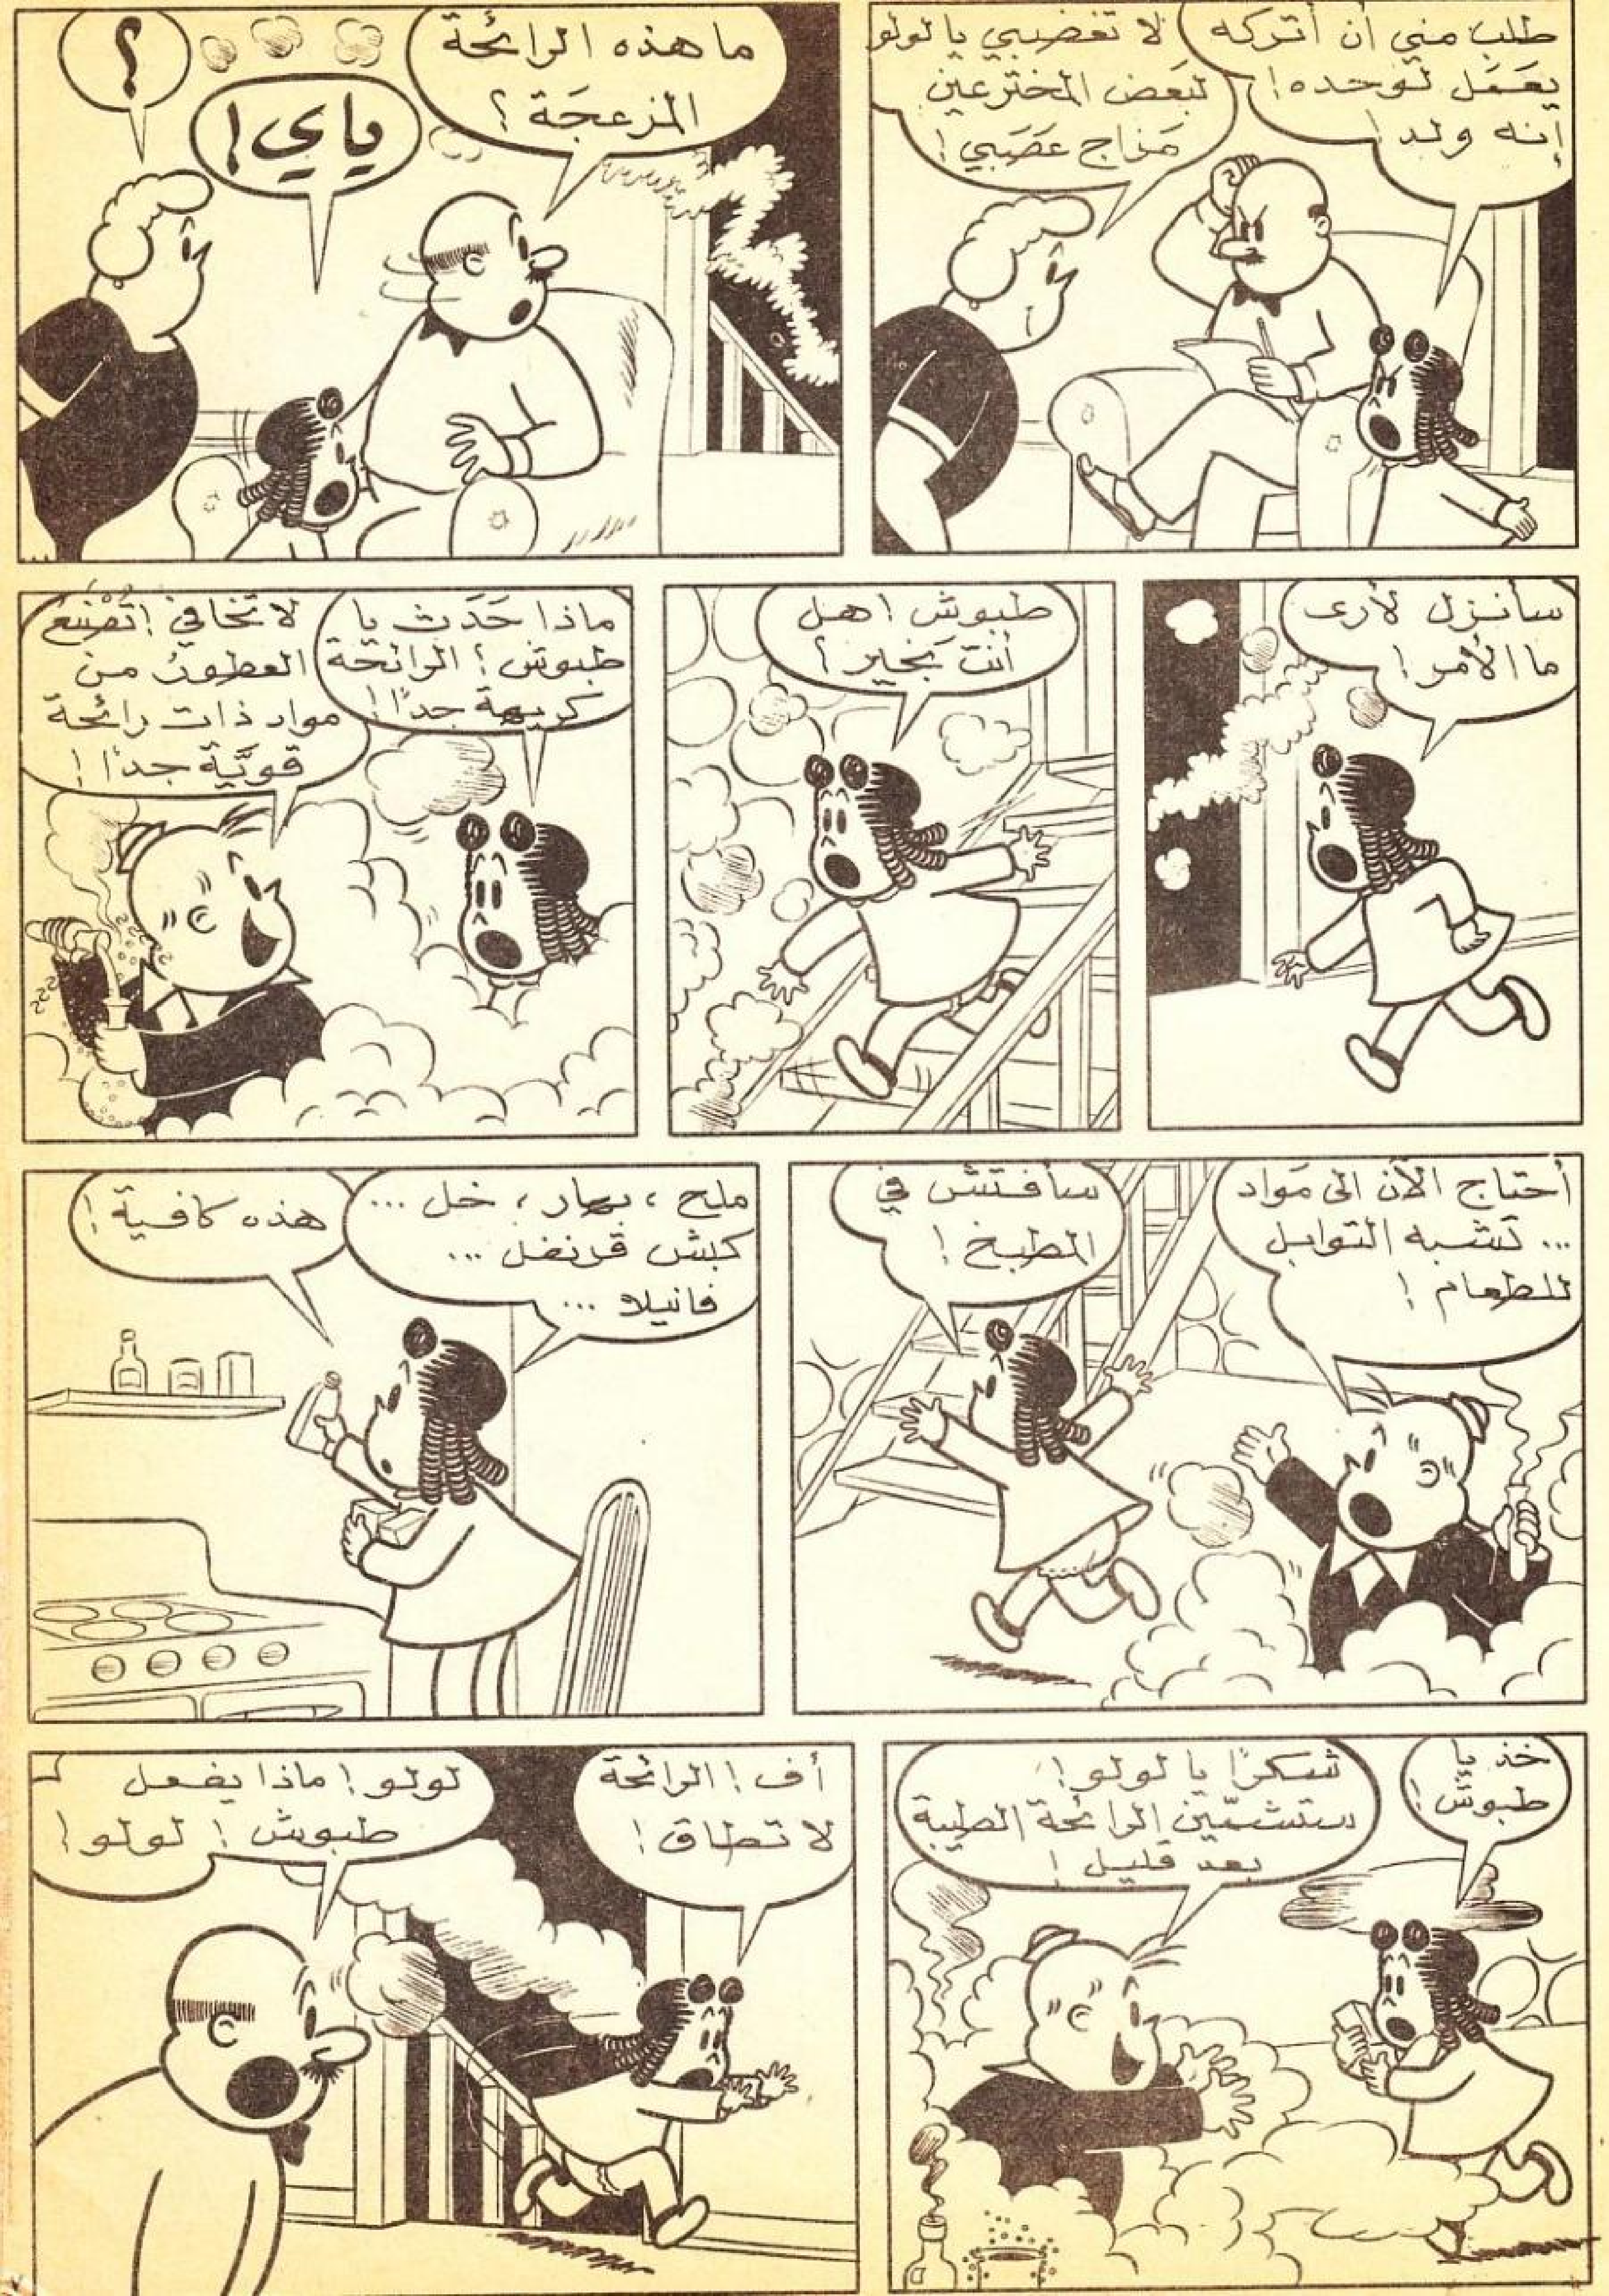 طلب مني أن أتركه
يعمَل لوحده!
إنه ولد!
لا تغضبي يا لولو
لبَعض المخترعين
مَزاج عَصَبي!
ما هذه الرائحة
المزعجَة؟
ياي!
؟
سأنزل لأرى
ما الأمر!
طبوش! هل
أنتَ بَخير؟
ماذا حَدَث يا
طبوش؟ الرائحة
كريهة جدًا!
لا تخافي! تُصْنَعُ
العطورُ من
مواد ذات رائحة
قويَّة جدًا!
أحتاج الآن الى مَواد
... تشبه التوابل
للطعام!
سأفتش في
المطبخ!
ملح ، بهار ، خل ...
كبش قرنفل ...
فانيلا ...
هذه كافية!
خذ يا
طبوش!
شكرًا يا لولو!
ستشمّين الرائحة الطيبة
بعد قليل!
أف! الرائحة
لا تطاق!
لولو! ماذا يفعل
طبوش! لولو!